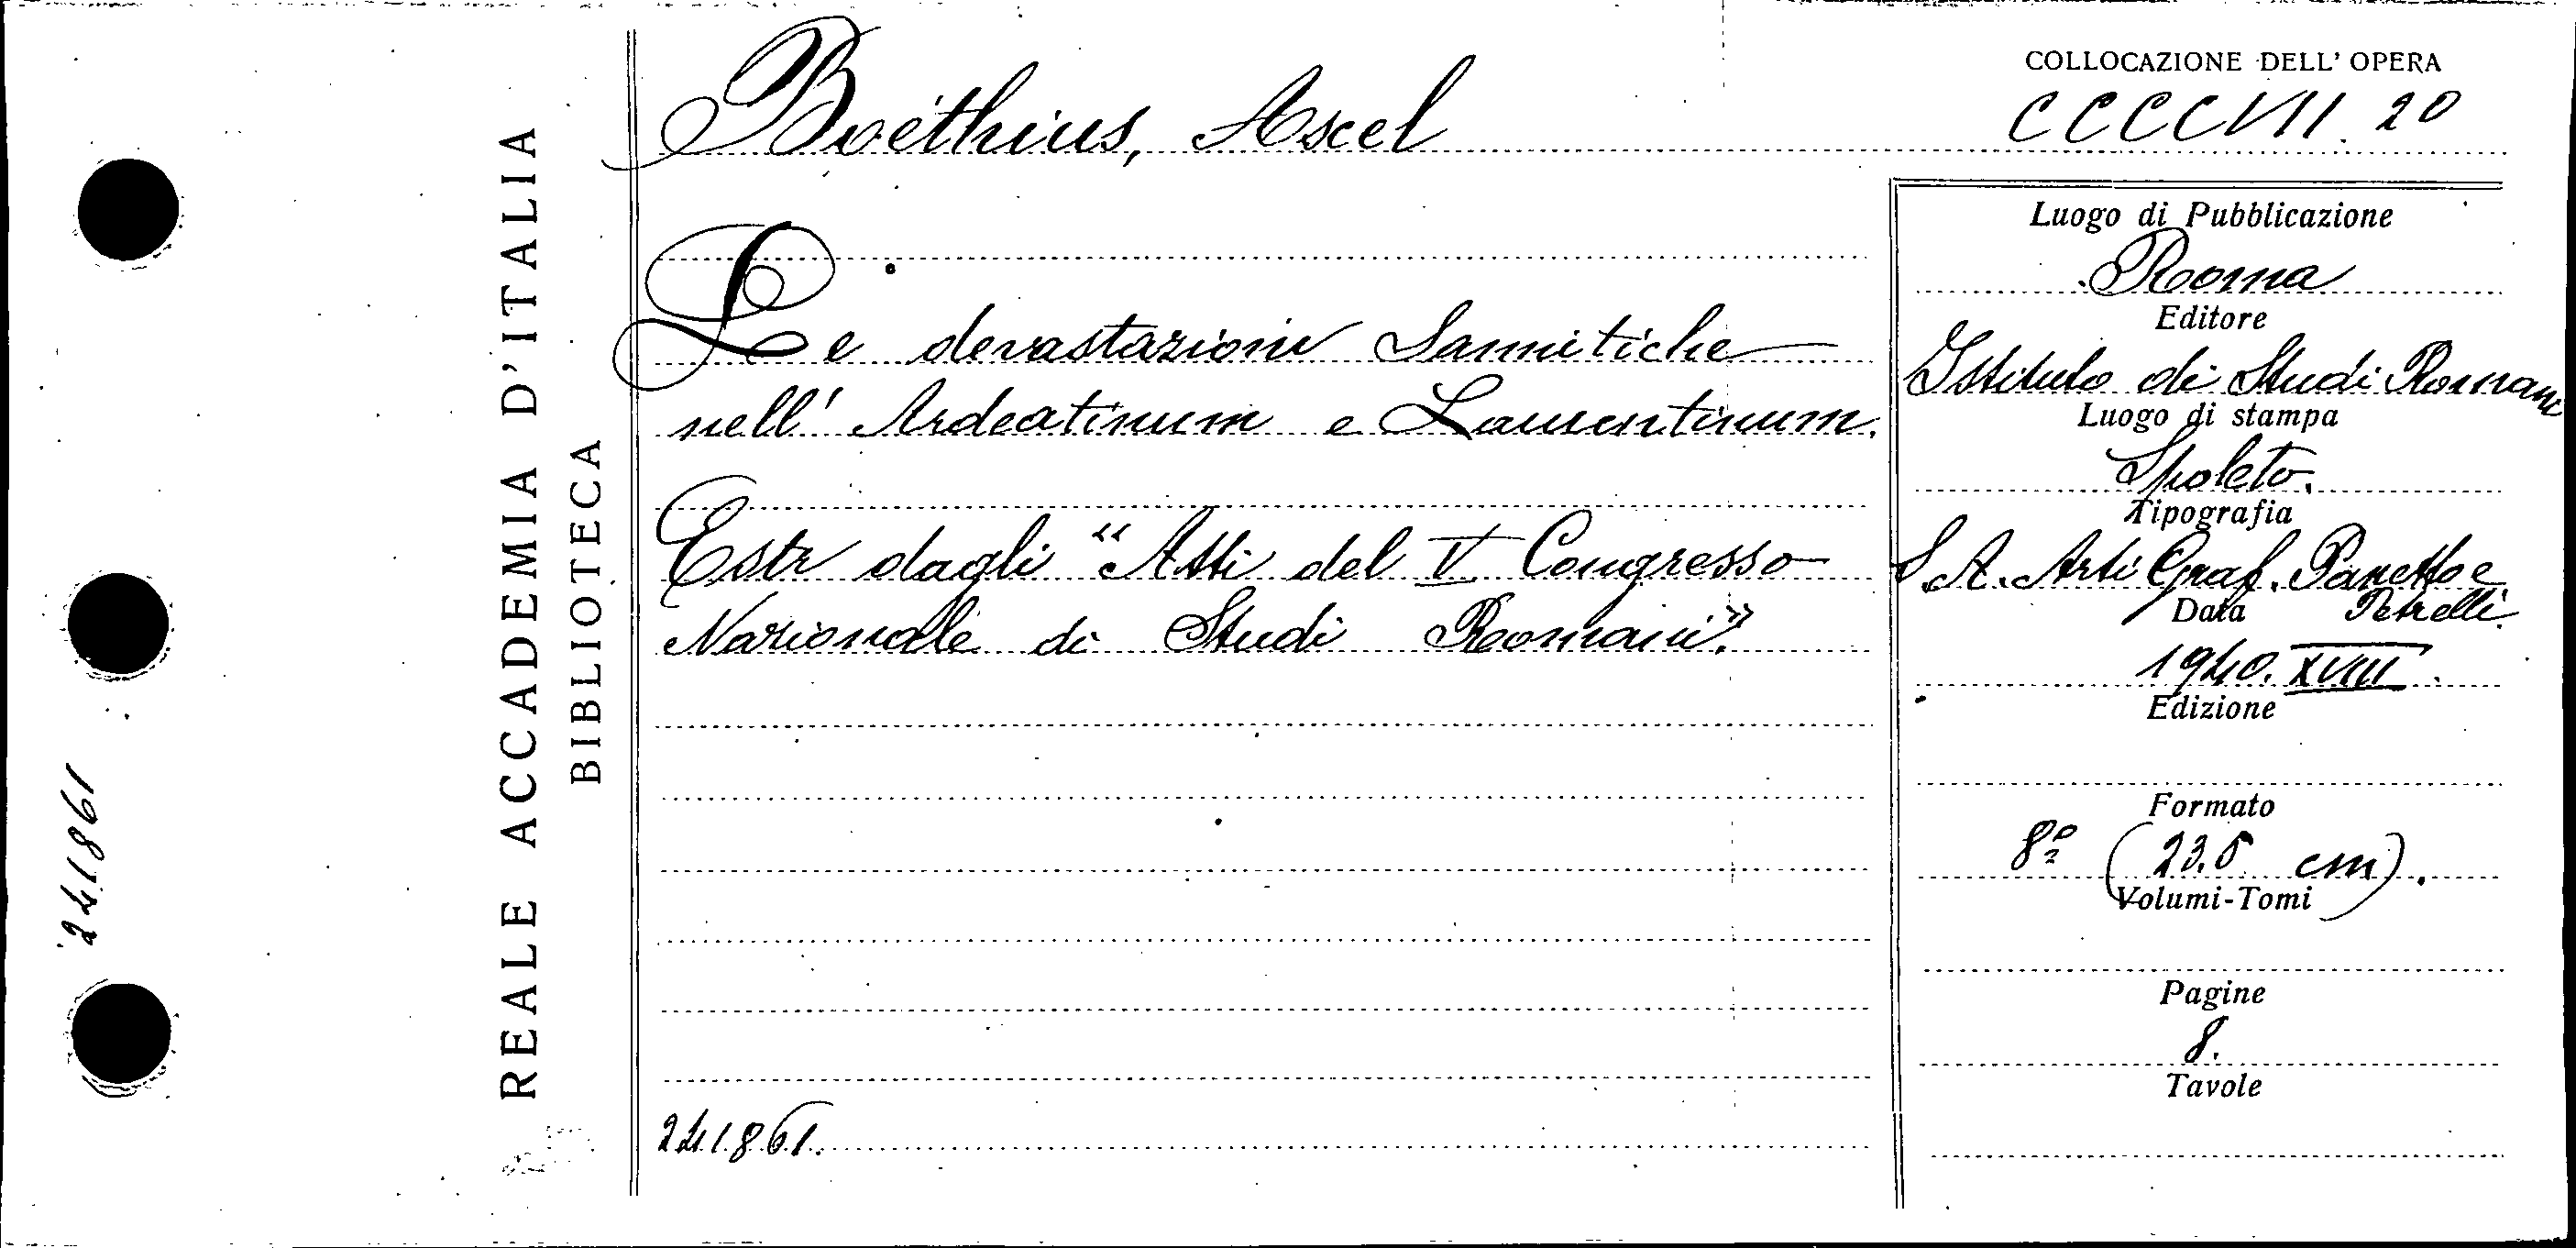 REALE ACCADEMIA D'ITALIA
BIBLIOTECA
241861
Boëthius, Axel
COLLOCAZIONE DELL' OPERA
CCCCVII. 20
Le devastazioni Sannitiche
nell' Ardeatinum e Laurentinum.
Estr dagli "Atti del V Congresso
Nazionale di Studi Romani".
241861.
Luogo di Pubblicazione
Roma
Editore
Istituto di Studi Romani
Luogo di stampa
Spoleto.
Tipografia
S. A. Arti Graf. Panetto e
Petrelli.
Data
1940. XVIII.
Edizione
Formato
8º (23.5 cm).
Volumi-Tomi
Pagine
8.
Tavole